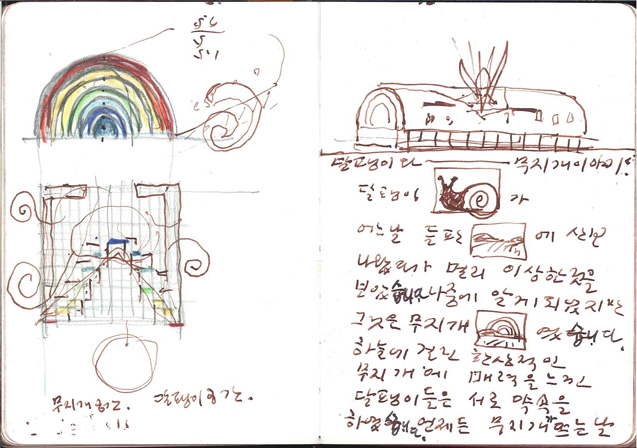 무지개형은. 달팽이형은.
달팽이와 무지개이야기!
달팽이 가
어느날 들판 에 산보
나왔다가 멀리 이상한것을
보았습니다나중에 알게되었지만
그것은 무지개 였습니다.
하늘에 걸린 환상적인
무지개에 매력을 느낀
달팽이들은 서로 약속을
하였습니다.언제든 무지개뜨는날